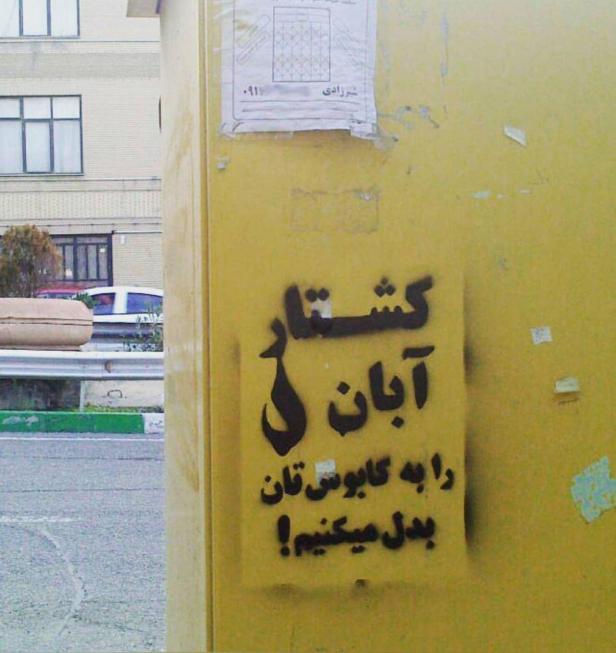 شیرزادی ۰۹۱
کشتار
آبان
را به کابوس‌تان
بدل میکنیم!